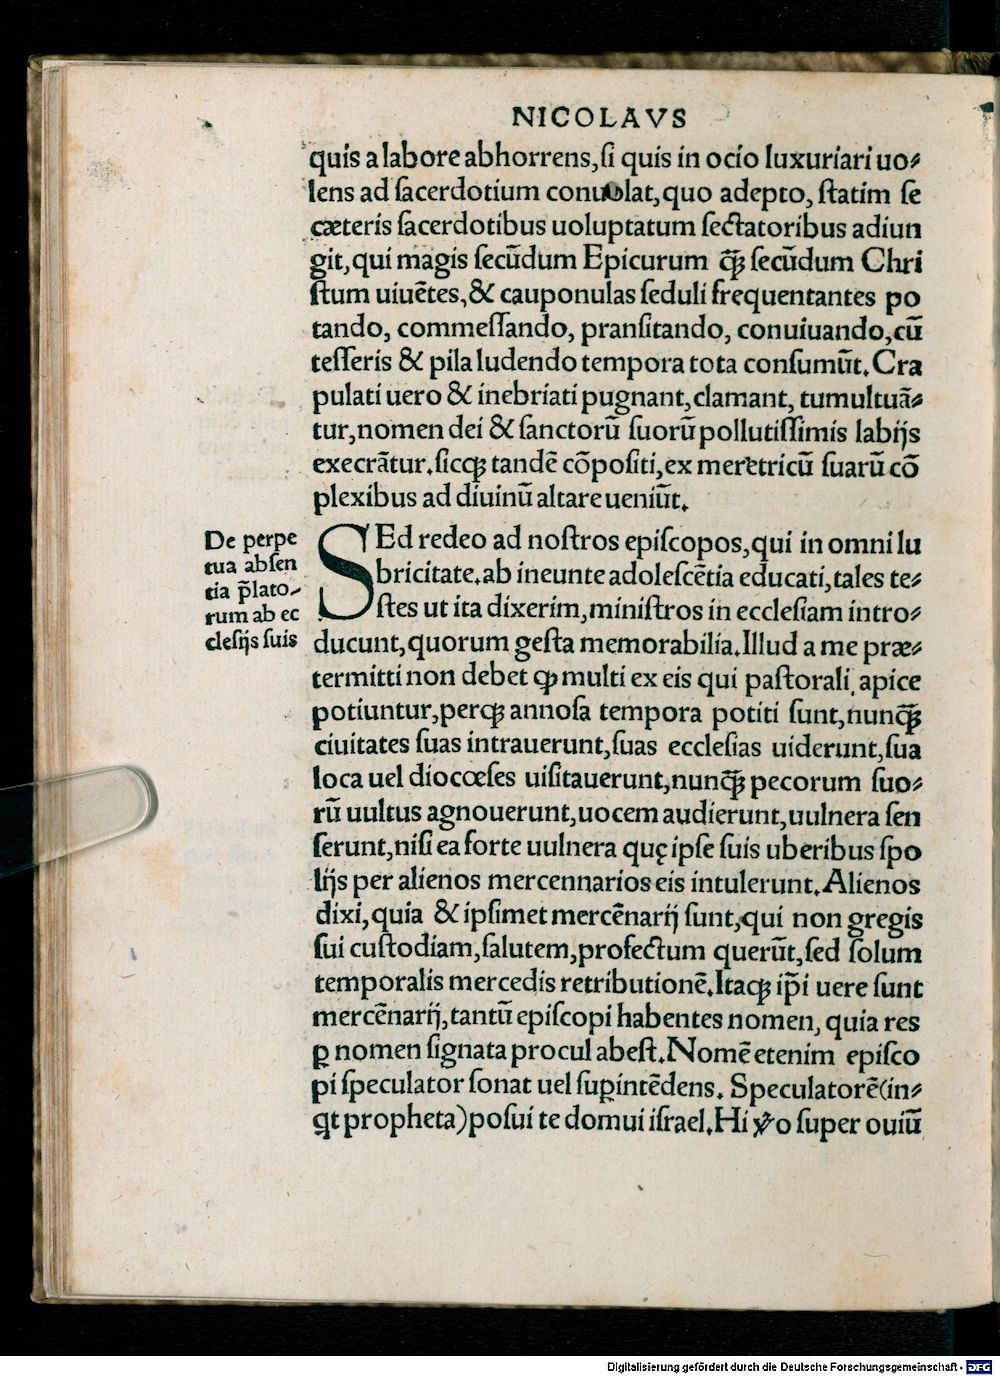 NICOLAVS
quis a labore abhorrens, ſi quis in ocio luxuriari uo⸗
lens ad ſacerdotium conuolat, quo adepto, ſtatim ſe
cæteris ſacerdotibus uoluptatum ſectatoribus adiun
git, qui magis ſecūdum Epicurum q̄ꝫ ſecūdum Chri
ſtum uiuētes, & cauponulas ſeduli frequentantes po
tando, commeſſando, pranſitando, conuiuando, cū
teſſeris & pila ludendo tempora tota conſumūt. Cra
pulati uero & inebriati pugnant, clamant, tumultuā⸗
tur, nomen dei & ſanctorū ſuorū pollutiſſimis labijs
execrātur. ſicqꝫ tandē cōpoſiti, ex meretricū ſuarū cō
plexibus ad diuinū altare ueniūt.
De perpe
tua abſen
tia p̄lato⸗
rum ab ec
cleſijs ſuis
SEd redeo ad noſtros epiſcopos, qui in omni lu
bricitate. ab ineunte adoleſcētia educati, tales te⸗
ſtes ut ita dixerim, miniſtros in eccleſiam intro⸗
ducunt, quorum geſta memorabilia. Illud a me præ⸗
termitti non debet ꝙ multi ex eis qui paſtorali apice
potiuntur, perqꝫ annoſa tempora potiti ſunt, nunq̄ꝫ
ciuitates ſuas intrauerunt, ſuas eccleſias uiderunt, ſua
loca uel diocœſes uiſitauerunt, nunq̄ꝫ pecorum ſuo⸗
rū uultus agnouerunt, uocem audierunt, uulnera ſen
ſerunt, niſi ea forte uulnera quę ipſe ſuis uberibus ſpo
lijs per alienos mercennarios eis intulerunt. Alienos
dixi, quia & ipſimet mercēnarij ſunt, qui non gregis
ſui cuſtodiam, ſalutem, profectum querūt, ſed ſolum
temporalis mercedis retributionē. Itaqꝫ ip̄i uere ſunt
mercēnarij, tantū epiſcopi habentes nomen, quia res
ꝑ nomen ſignata procul abeſt. Nomē etenim epiſco
pi ſpeculator ſonat uel ſuꝑintēdens. Speculatorē (in⸗
q̇t propheta) poſui te domui iſrael. Hi ꝟo ſuper ouiū
Digitalisierung gefördert durch die Deutsche Forschungsgemeinschaft - DFG